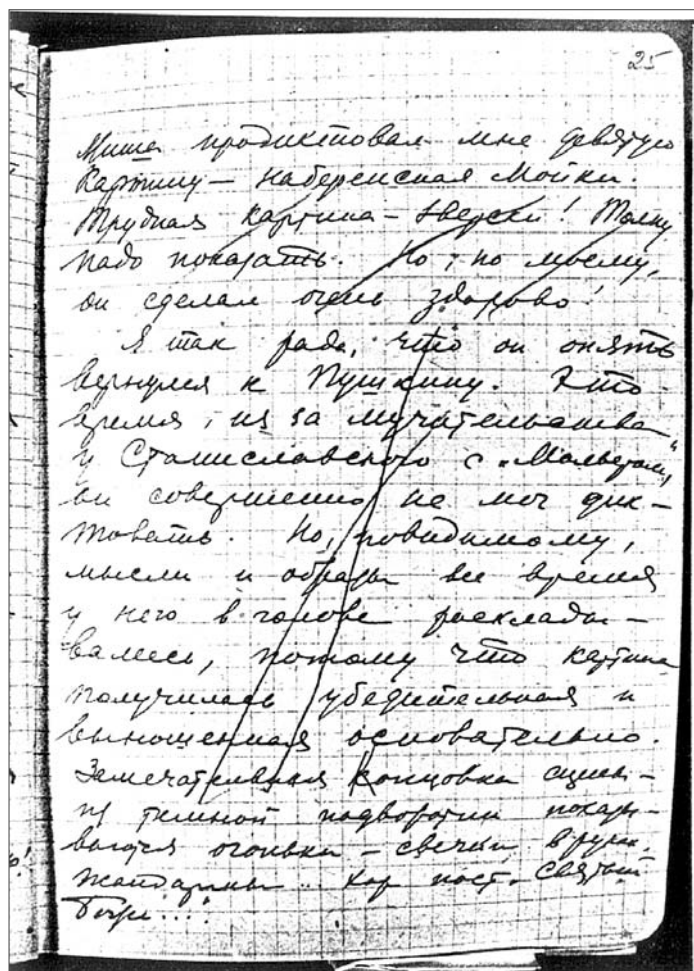 25
Миша продиктовал мне девятую
картину — набережная Мойки.
Трудная картина — зверски! Толпу
надо показать. Но, по моему,
он сделал очень здорово!
Я так рада, что он опять
вернулся к Пушкину. Это
время, из за мучительства
у Станиславского с „Мольером",
он совершенно не мог дик-
товать. Но, повидимому,
мысли и образы все время
у него в голове расклады-
вались, потому что картина
получилась убедительная и
выношенная основательно.
Замечательная концовка сцены —
из темной подворотни показы-
ваются огоньки — свечки в руках.
Жандармы.. Хор поет. Святый
Боже...!